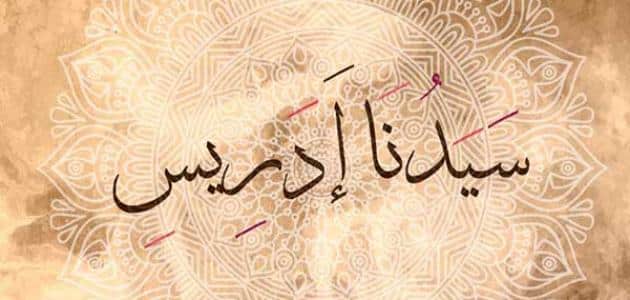 سَيَدُنَا إَدَرِيِسَ